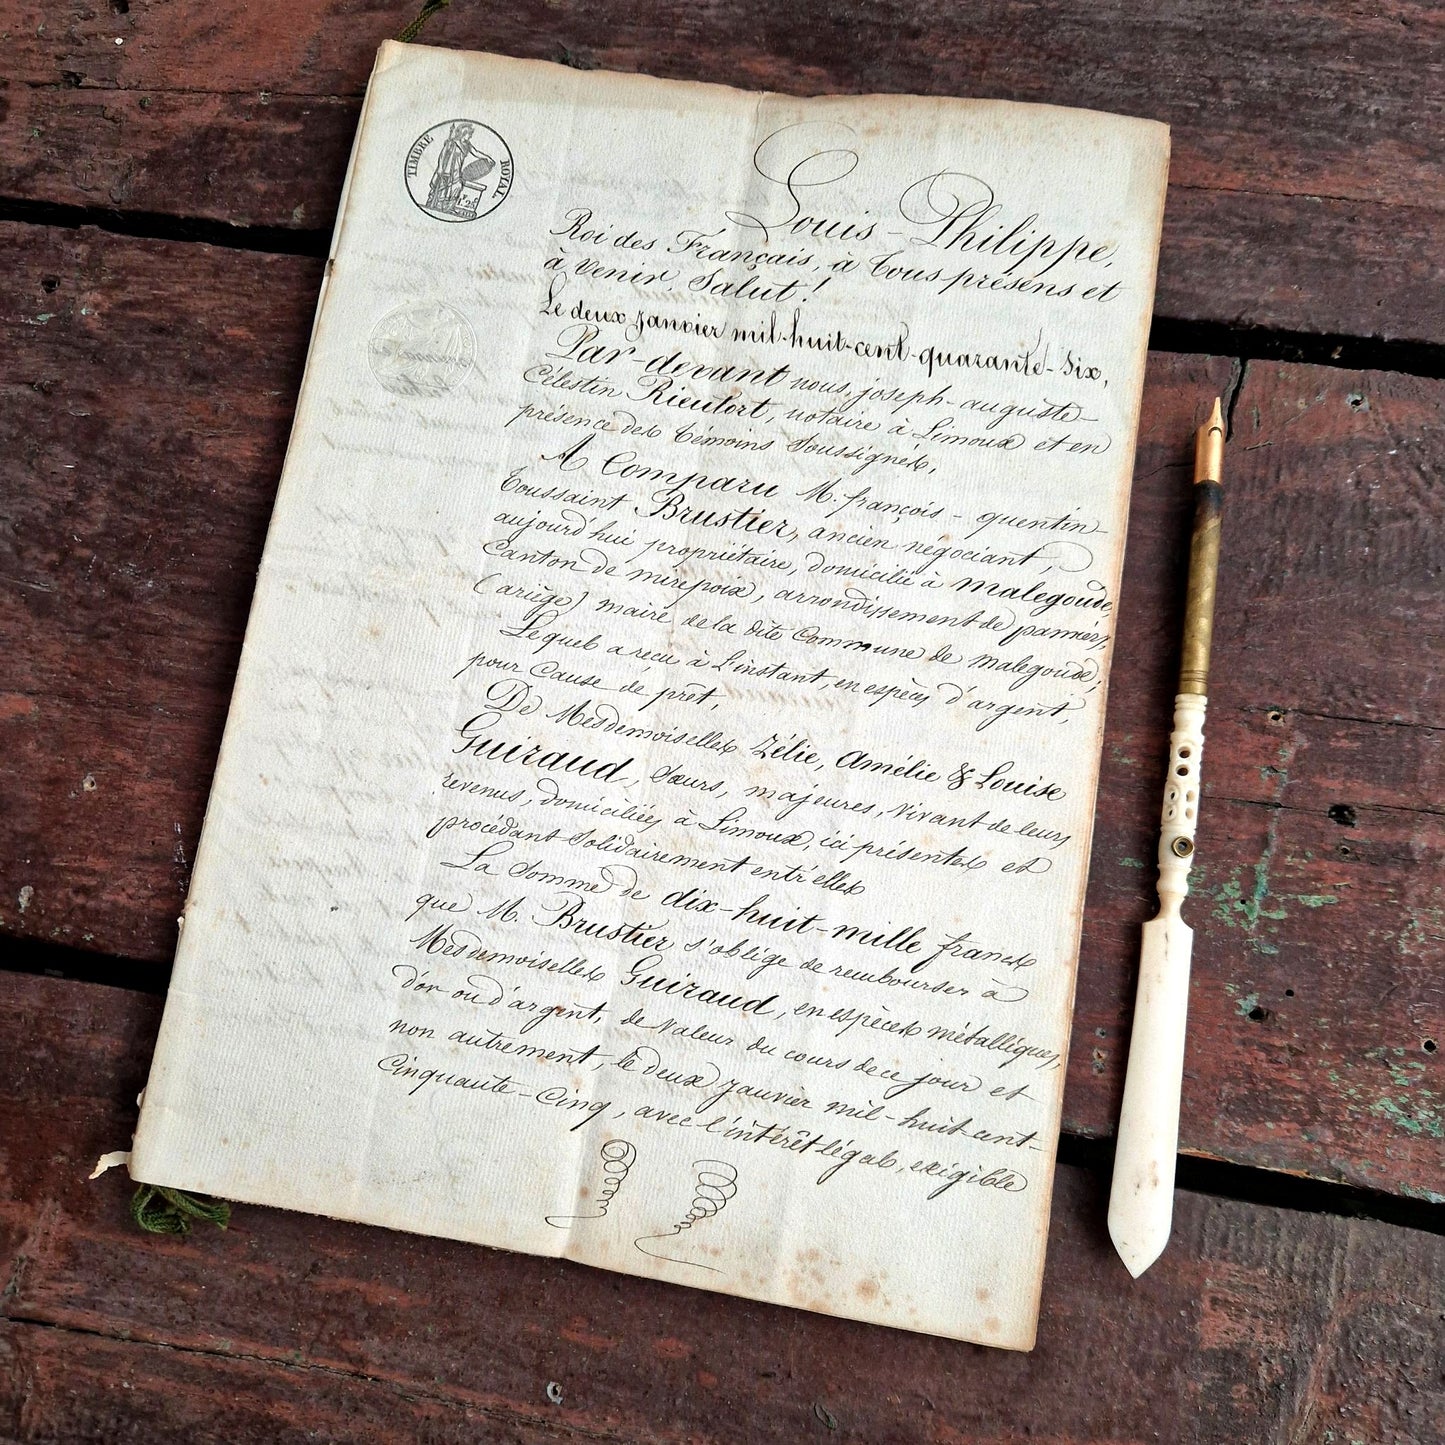 TIMBRE ROYAL
1f 25c
Louis-Philippe,
Roi des Français, à tous présens et
à venir, Salut!
Le deux janvier mil-huit-cent-quarante-six,
Par-devant nous, joseph-auguste-
Célestin Rieufort, notaire à Limoux et en
présence des témoins soussignés,
A Comparu M. françois-quentin-
Toussaint Brustier, ancien négociant,
aujourd'hui propriétaire, domicilié à malegoude,
Canton de mirepoix, arrondissement de pamiers,
(ariège) maire de la dite Commune de malegoude;
Lequel a reçu à l'instant, en espèces d'argent,
pour Cause de prêt,
De Mesdemoiselles Zélie, Amélie & Louise
Guiraud, Sœurs, majeures, vivant de leurs
revenus, domiciliées à Limoux, ici présentes et
procédant solidairement entr'elles
La somme de dix-huit-mille francs
que M. Brustier s'oblige de rembourser à
Mesdemoiselles Guiraud, en espèces métalliques,
d'or ou d'argent, de valeur du cours de ce jour et
non autrement, le deux janvier mil-huit-cent-
Cinquante-Cinq, avec l'intérêt légal, exigible